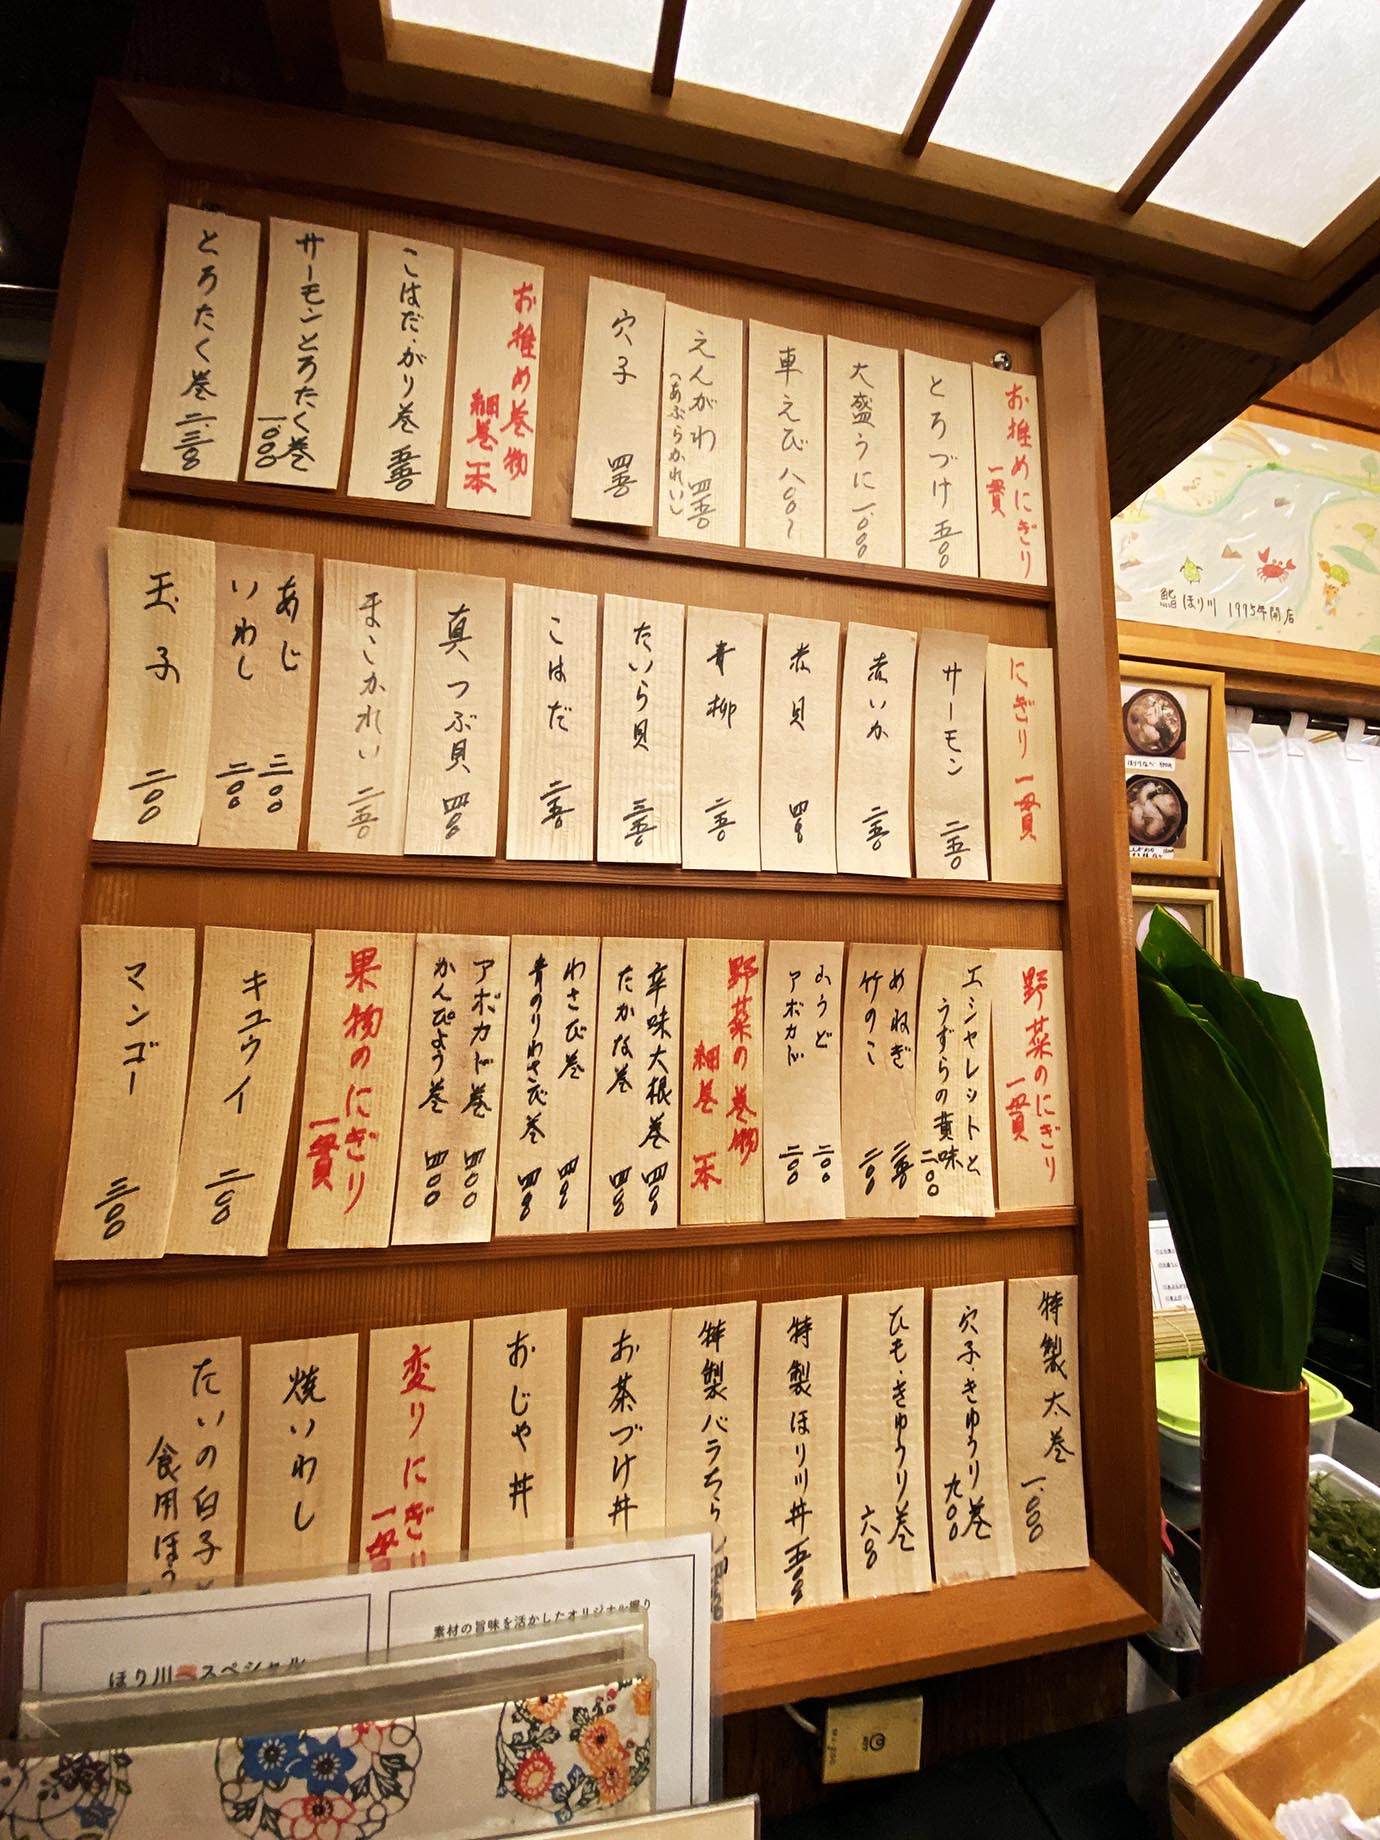 お推めにぎり
一貫
とろづけ 五〇〇
大盛うに 一、〇〇〇
車えび 八〇〇〜
えんがわ 四五〇
(あぶらかれい)
穴子 四五〇
お推め巻物
細巻一本
こはだ・がり巻 五五〇
サーモンとろたく巻
一、〇〇〇
とろたく巻 二、三〇〇
にぎり一貫
サーモン 二五〇
赤いか 二五〇
赤貝 四〇〇
青柳 二五〇
たいら貝 三五〇
こはだ 二五〇
真つぶ貝 四〇〇
まこかれい 二五〇
あじ 三〇〇
いわし 二〇〇
玉子 二〇〇
野菜のにぎり
一貫
エシャレットと
うずらの黄味 二〇〇
めねぎ 二五〇
竹のこ 二〇〇
山うど 二〇〇
アボカド 二〇〇
野菜の巻物
細巻一本
辛味大根巻 四〇〇
たかな巻 四〇〇
わさび巻 四〇〇
青のりわさび巻 四〇〇
アボカド巻 四〇〇
かんぴょう巻 四〇〇
果物のにぎり
一貫
キュウイ 二〇〇
マンゴー 三〇〇
特製太巻 一、〇〇〇
穴子・きゅうり巻
九〇〇
ひも・きゅうり巻
六〇〇
特製ほり川丼 一、五〇〇
特製バラちら
お茶づけ丼
おじゃ丼
変りにぎり
一貫
焼いわし
たいの白子
食用ほう
鮨 ほり川 1995年開店
素材の旨味を活かしたオリジナル握り
ほり川スペシャル